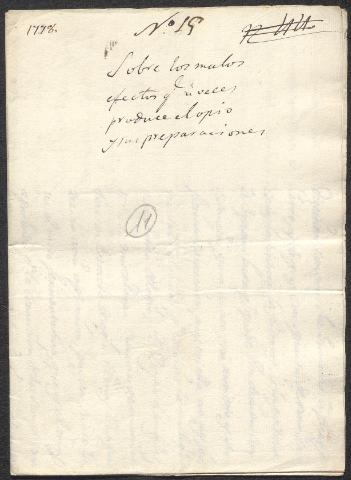 1778. Nº 15
Sobre los malos
efectos q. a veces
produce el opio
y sus preparaciones
11